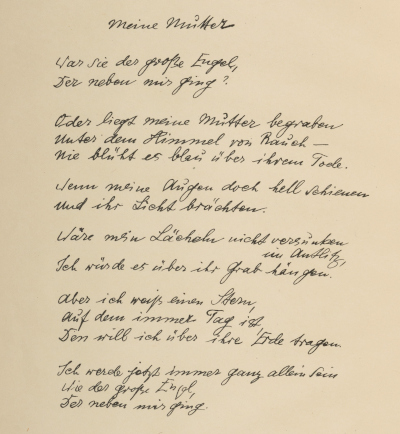 Meine Mutter
War sie der große Engel,
Der neben mir ging?
Oder liegt meine Mutter begraben
Unter dem Himmel von Rauch –
Nie blüht es blau über ihrem Tode.
Wenn meine Augen doch hell schienen
Und ihr Licht brächten.
Wäre mein Lächeln nicht versunken
im Antlitz,
Ich würde es über ihr Grab hängen.
Aber ich weiß einen Stern,
Auf dem immer Tag ist
Den will ich über ihre Erde tragen.
Ich werde jetzt immer ganz allein sein
Wie der große Engel,
Der neben mir ging.